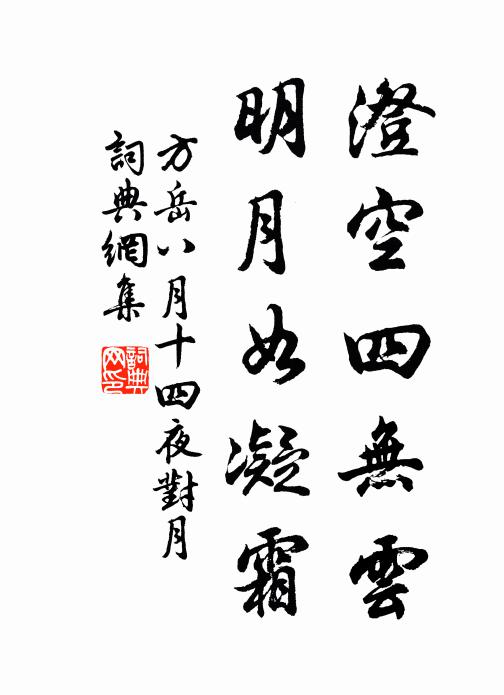 澄空四無雲
明月如凝霜
方岳八月十四夜對月
詞典網集
詞典网印